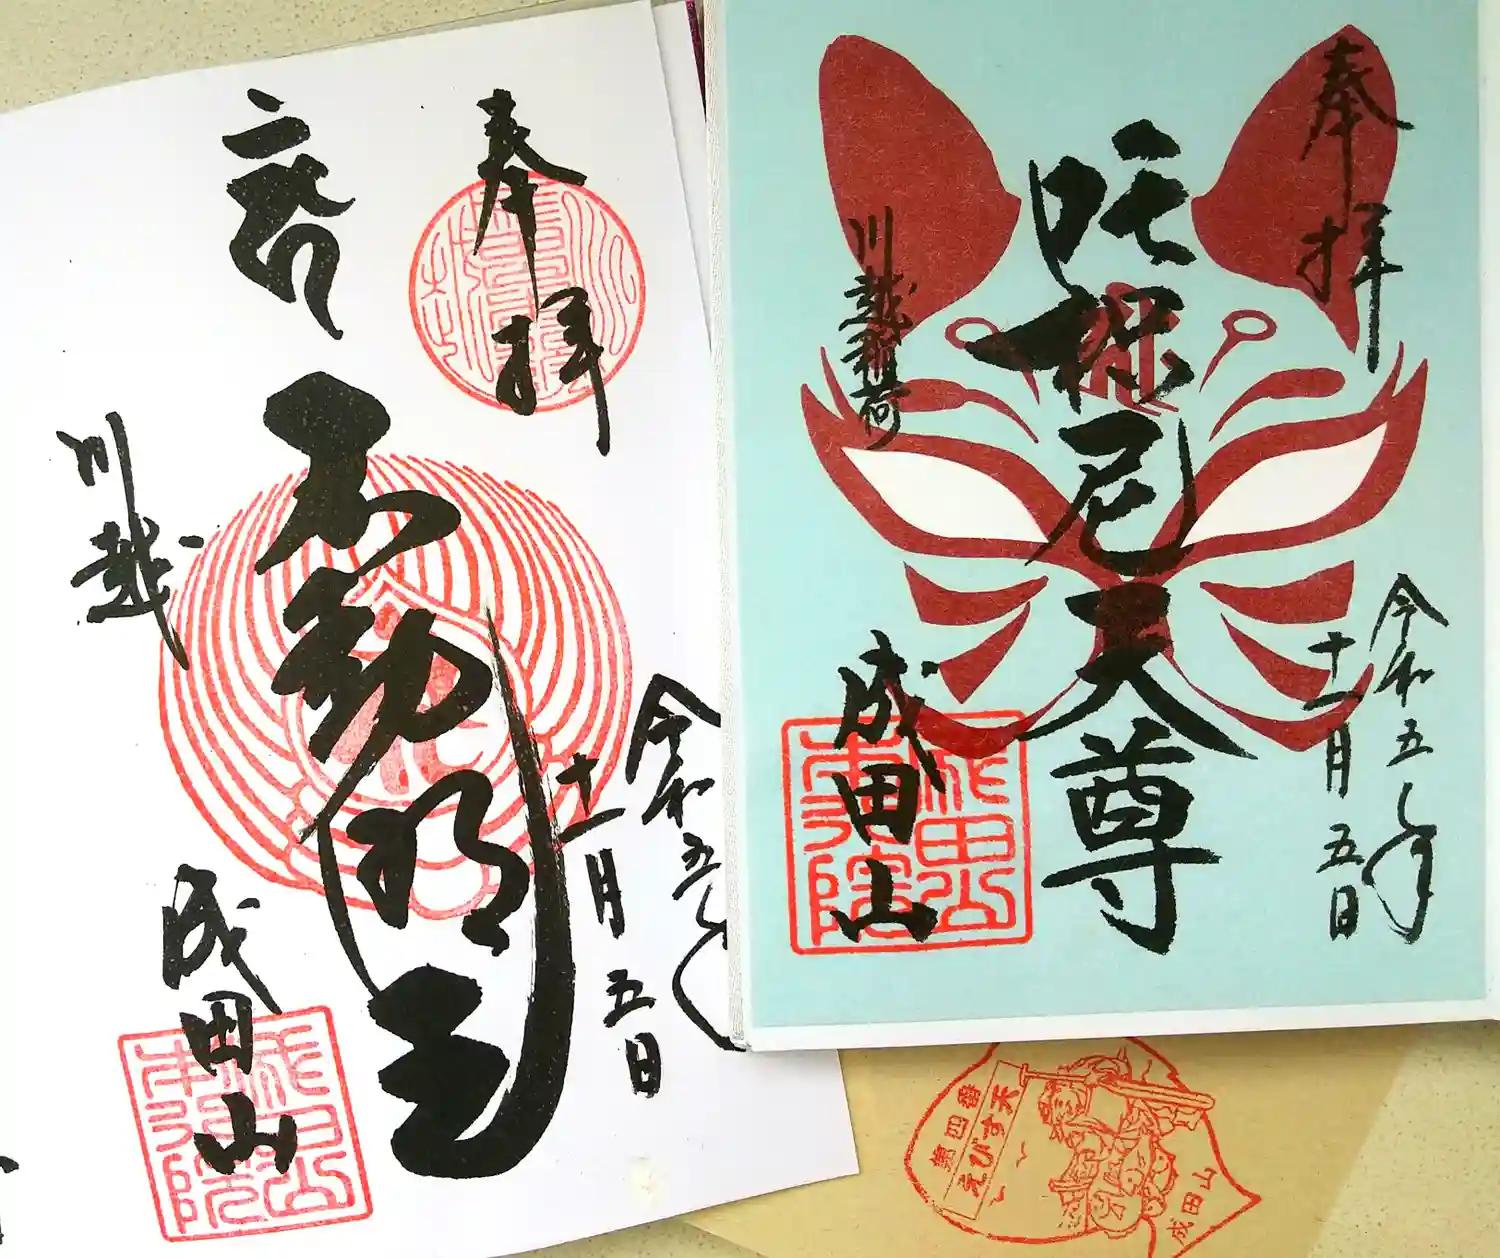 奉拝
令和五年
十一月五日
不動明王
川越
成田山
成田山本行院
奉拝
令和五年
十一月五日
吒枳尼天尊
川越稲荷
成田山
成田山本行院
第四番
えびす天
成田山